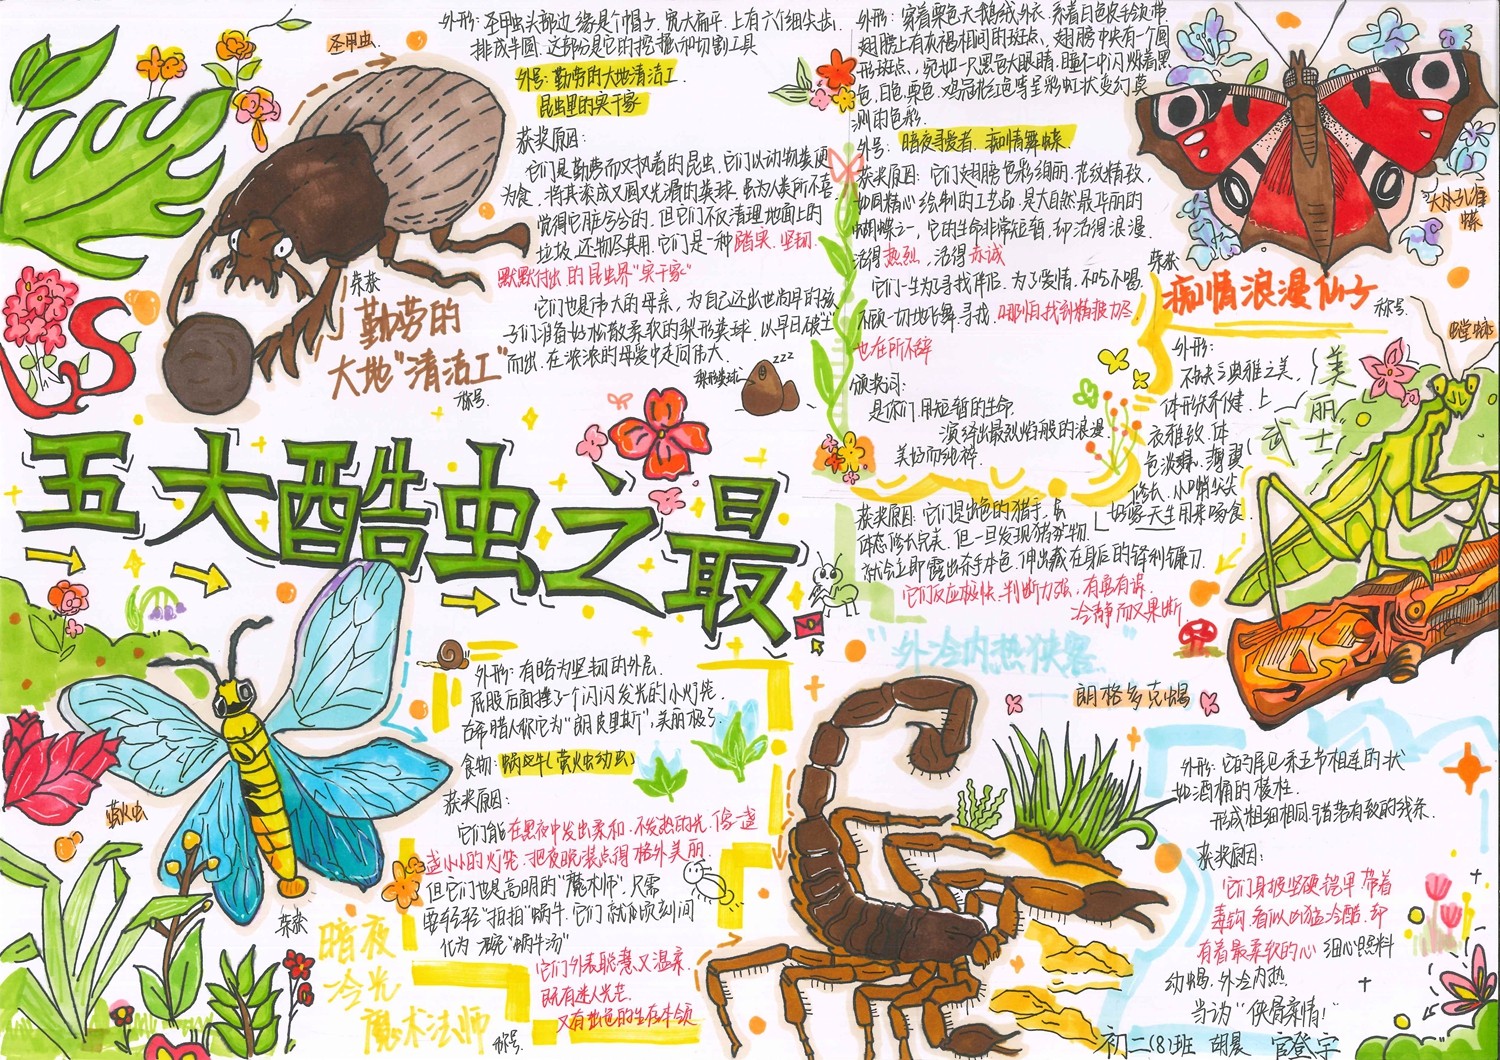 圣甲虫
外形：圣甲虫头部边缘是个帽子，宽大扁平，上有六个细尖齿，
排成半圆，这部分是它的挖掘和切割工具
外号：勤劳的大地清洁工
昆虫里的实干家
获奖原因：
它们是勤劳而又执着的昆虫，它们以动物粪便
为食，将其滚成又圆又光滑的粪球，虽为人类所不喜，
觉得它脏兮兮的，但它们不仅清理地面上的
垃圾，还物尽其用，它们是一种踏实、坚韧、
默默付出的昆虫界"实干家"
它们也是伟大的母亲，为自己还出世尚早的孩
子们准备好松散柔软的梨形粪球，以早日破"土"
而出，在浓浓的母爱中走向伟大。
梨形粪球
zzz
荣获
勤劳的
大地"清洁工"
称号
外形：穿着栗色天鹅绒外衣，系着白色皮毛领带，
翅膀上有灰褐相间的斑点，翅膀中央有一个圆
形斑点，宛如一只黑色大眼睛，瞳仁中闪烁着黑
色、白色、栗色、鸡冠花红色等呈彩虹状变幻莫
测的色彩
外号：暗夜寻爱者、痴情舞蝶
获奖原因：它们翅膀色彩绚丽，花纹精致，
如同精心绘制的工艺品，是大自然最华丽的
蝴蝶之一，它的生命非常短暂，却活得浪漫，
活得热烈，活得赤诚
它们一生为了寻找伴侣，为了爱情，不吃不喝，
不顾一切地飞舞寻找，哪怕找到精疲力尽，
也在所不辞
颁奖词：
是你们，用短暂的生命，
演绎出最烈焰般的浪漫，
美好而纯粹
大孔雀蝶
荣获
痴情浪漫仙子
称号
五大酷虫之最
螳螂
外形：
不缺乏典雅之美，
体形矫健，上
衣雅致，体
色淡绿，薄翼
修长，小嘴尖尖
好像天生用来啄食
美丽武士
获奖原因：它们是出色的猎手，身
体态修长完美，但一旦发现猎物，
就会立即露出杀手本色，伸出藏在身后的锋利镰刀
它们反应极快，判断力强，有勇有谋，
冷静而又果断
萤火虫
外形：有略为坚韧的外层，
屁股后面挂了个闪闪发光的小灯笼，
古希腊人称它为"朗皮里斯"，美丽极了
食物：蜗牛（萤火虫幼虫）
获奖原因：
它们能在黑夜中发出柔和、不发热的光，像一盏
盏小小的灯笼，把夜晚装点得格外美丽
但它们也是高明的"魔术师"，只需
要轻轻"拍拍"蜗牛，它们就会顷刻间
化为一碗"蜗牛汤"
它们外表聪慧又温柔，
既有迷人光芒，
又有出色的生存本领
荣获
暗夜
冷光
魔术法师
称号
"外冷内热侠客"
朗格多克蝎
外形：它的尾巴系五节相连的状
如酒桶的棱柱，
形成粗细相同，错落有致的线条
获奖原因：
它们身披坚硬铠甲，带着
毒钩，看似凶猛冷酷，却
有着最柔软的心，细心照料
幼蝎，外冷内热
当为"侠骨柔情！"
初二(8)班 胡晨 官登宇